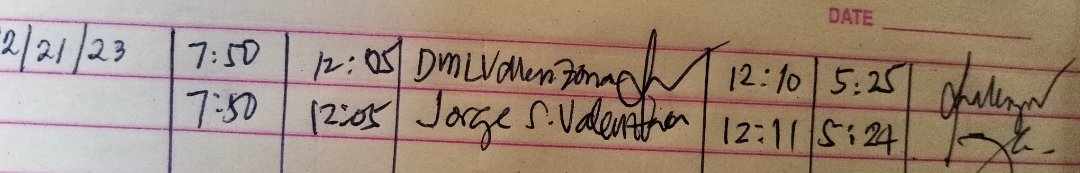 DATE
2/21/23 7:50 12:05 DMLVallenzona 12:10 5:25
7:50 12:05 Jorge S. Valentin 12:11 5:24